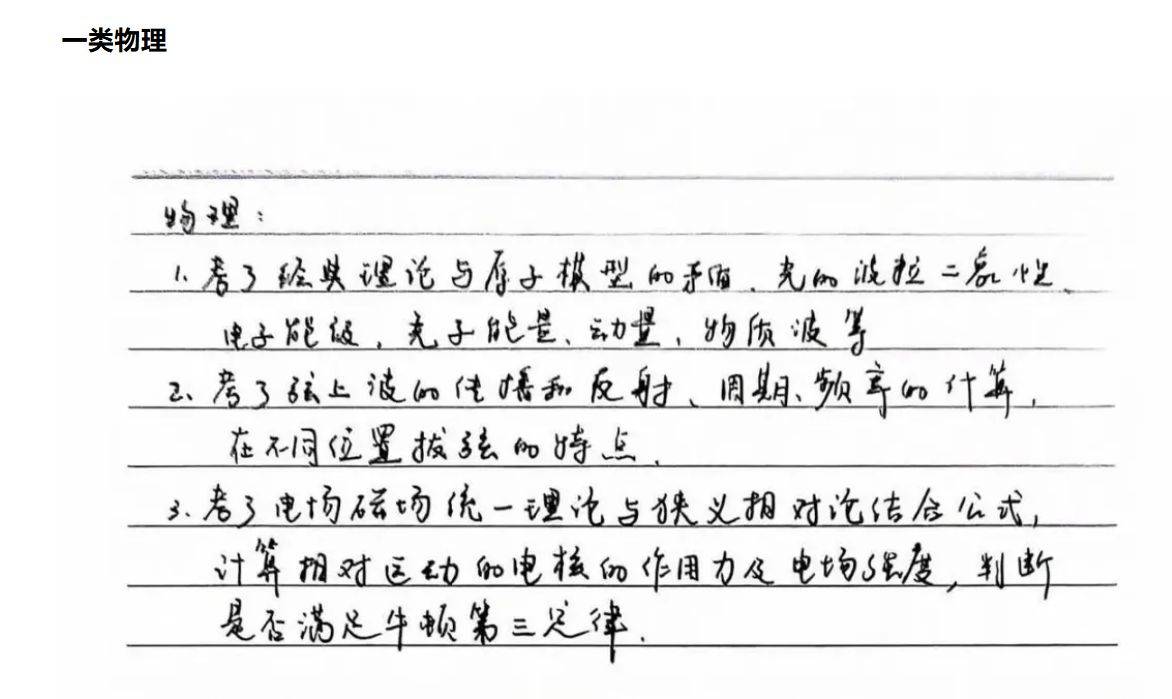 一类物理
物理：
1. 考了经典理论与原子模型的矛盾、光的波粒二象性、
电子能级、光子能量、动量、物质波等
2. 考了弦上波的传播和反射、周期、频率的计算，
在不同位置拨弦的特点、
3. 考了电场磁场统一理论与狭义相对论结合公式，
计算相对运动的电核的作用力及电场强度，判断
是否满足牛顿第三定律.